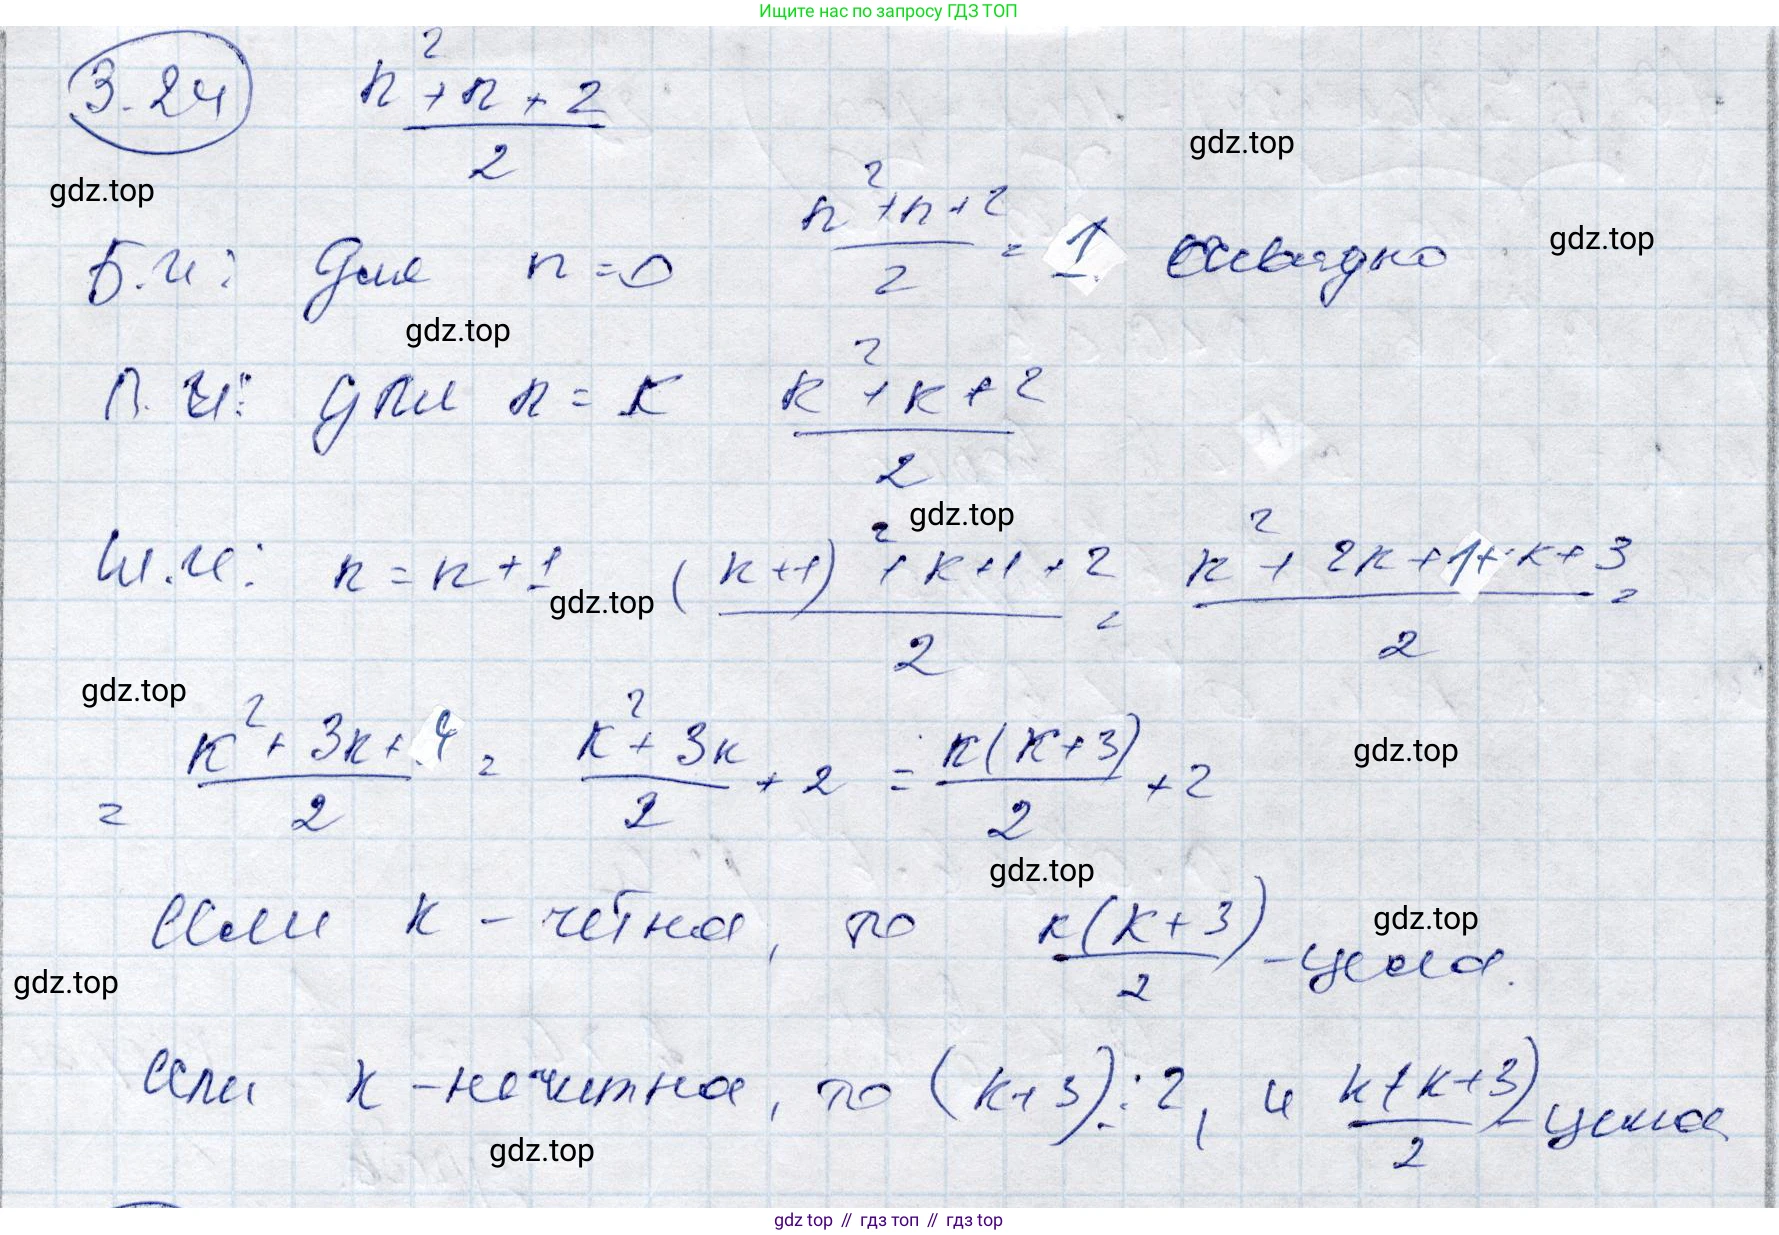 Ищите нас по запросу ГДЗ ТОП
3.24 (n² + n + 2)/2
gdz.top
gdz.top
Б.И: Для n = 0 (n² + n + 2)/2 = 1. очевидно
gdz.top
gdz.top
П.И: для n = k (k² + k + 2)/2
gdz.top
Ш.И: n = k + 1 ((k+1)² + k + 1 + 2)/2 = (k² + 2k + 1 + k + 3)/2 =
gdz.top
gdz.top
= (k² + 3k + 4)/2 = (k² + 3k)/2 + 2 = k(k+3)/2 + 2
gdz.top
gdz.top
Если k - чётна, то k(k+3)/2 - цела.
gdz.top
gdz.top
Если k - нечитна, то (k+3)⋮2, и k(k+3)/2 - цела
gdz.top
gdz top // гдз топ // гдз top